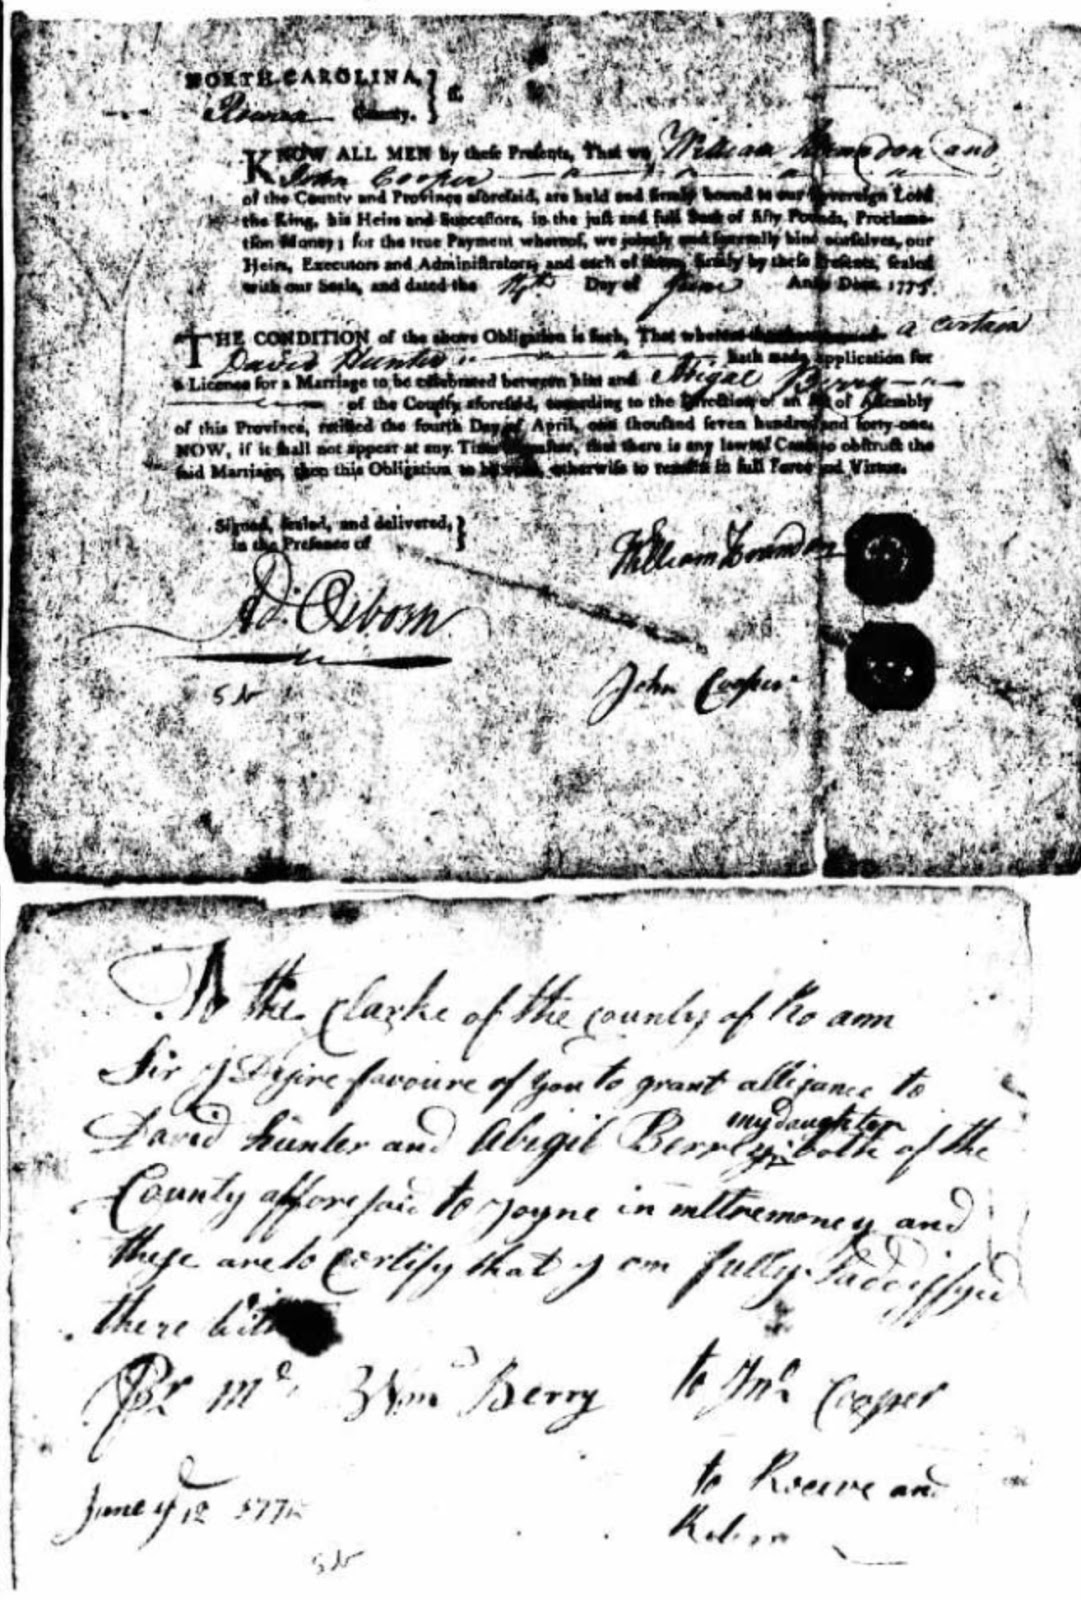 NORTH CAROLINA,
Rowan County. } ss.
KNOW ALL MEN by these Presents, That we William Brandon and
John Cooper
of the County and Province aforesaid, are held and firmly bound to our Sovereign Lord
the King, his Heirs and Successors, in the just and full Sum of fifty Pounds, Proclama-
tion Money; for the true Payment whereof, we jointly and severally bind ourselves, our
Heirs, Executors and Administrators, and each of them, firmly by these Presents, sealed
with our Seals, and dated the Day of June Anno Dom. 1775.
THE CONDITION of the above Obligation is such, That whereas a certain
David Hunter hath made application for
a Licence for a Marriage to be celebrated between him and Abigal Berry
of the County aforesaid, according to the Direction of an Act of Assembly
of this Province, ratified the fourth Day of April, one thousand seven hundred and forty-one.
NOW, if it shall not appear at any Time hereafter, that there is any lawful Cause to obstruct the
said Marriage, then this Obligation to be void, otherwise to remain in full Force and Virtue.
Signed, sealed, and delivered, }
in the Presence of
William Brandon
Ad. Osborn
John Cooper
To the Clarke of the county of Ro ann
Sir J Desire favoure of you to grant allijance to
my daughter
David hunter and Abigil Berrey both of the
County afforesaid to Joyne in mttremoney and
these are to Certify that J am fully
there with
Per me Wm Berry to Jno Cooper
to Receve and
June ye 12 1775